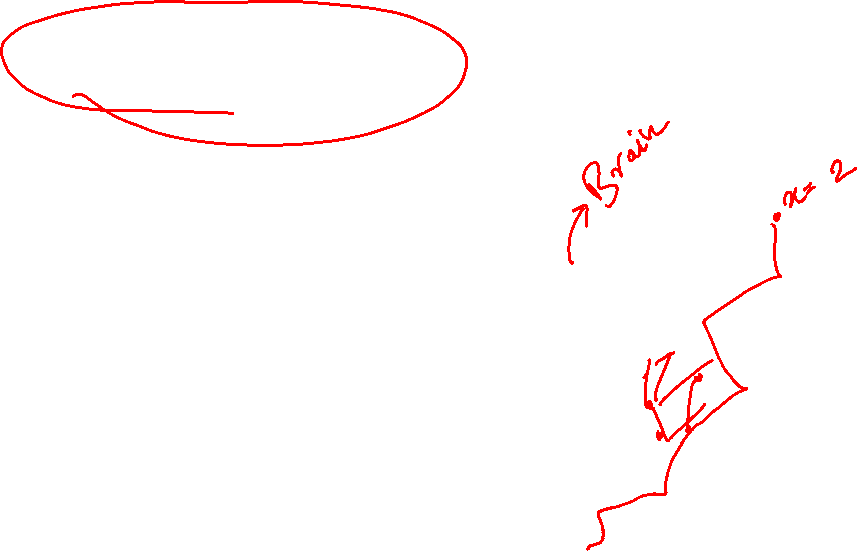 Brain
x = 2